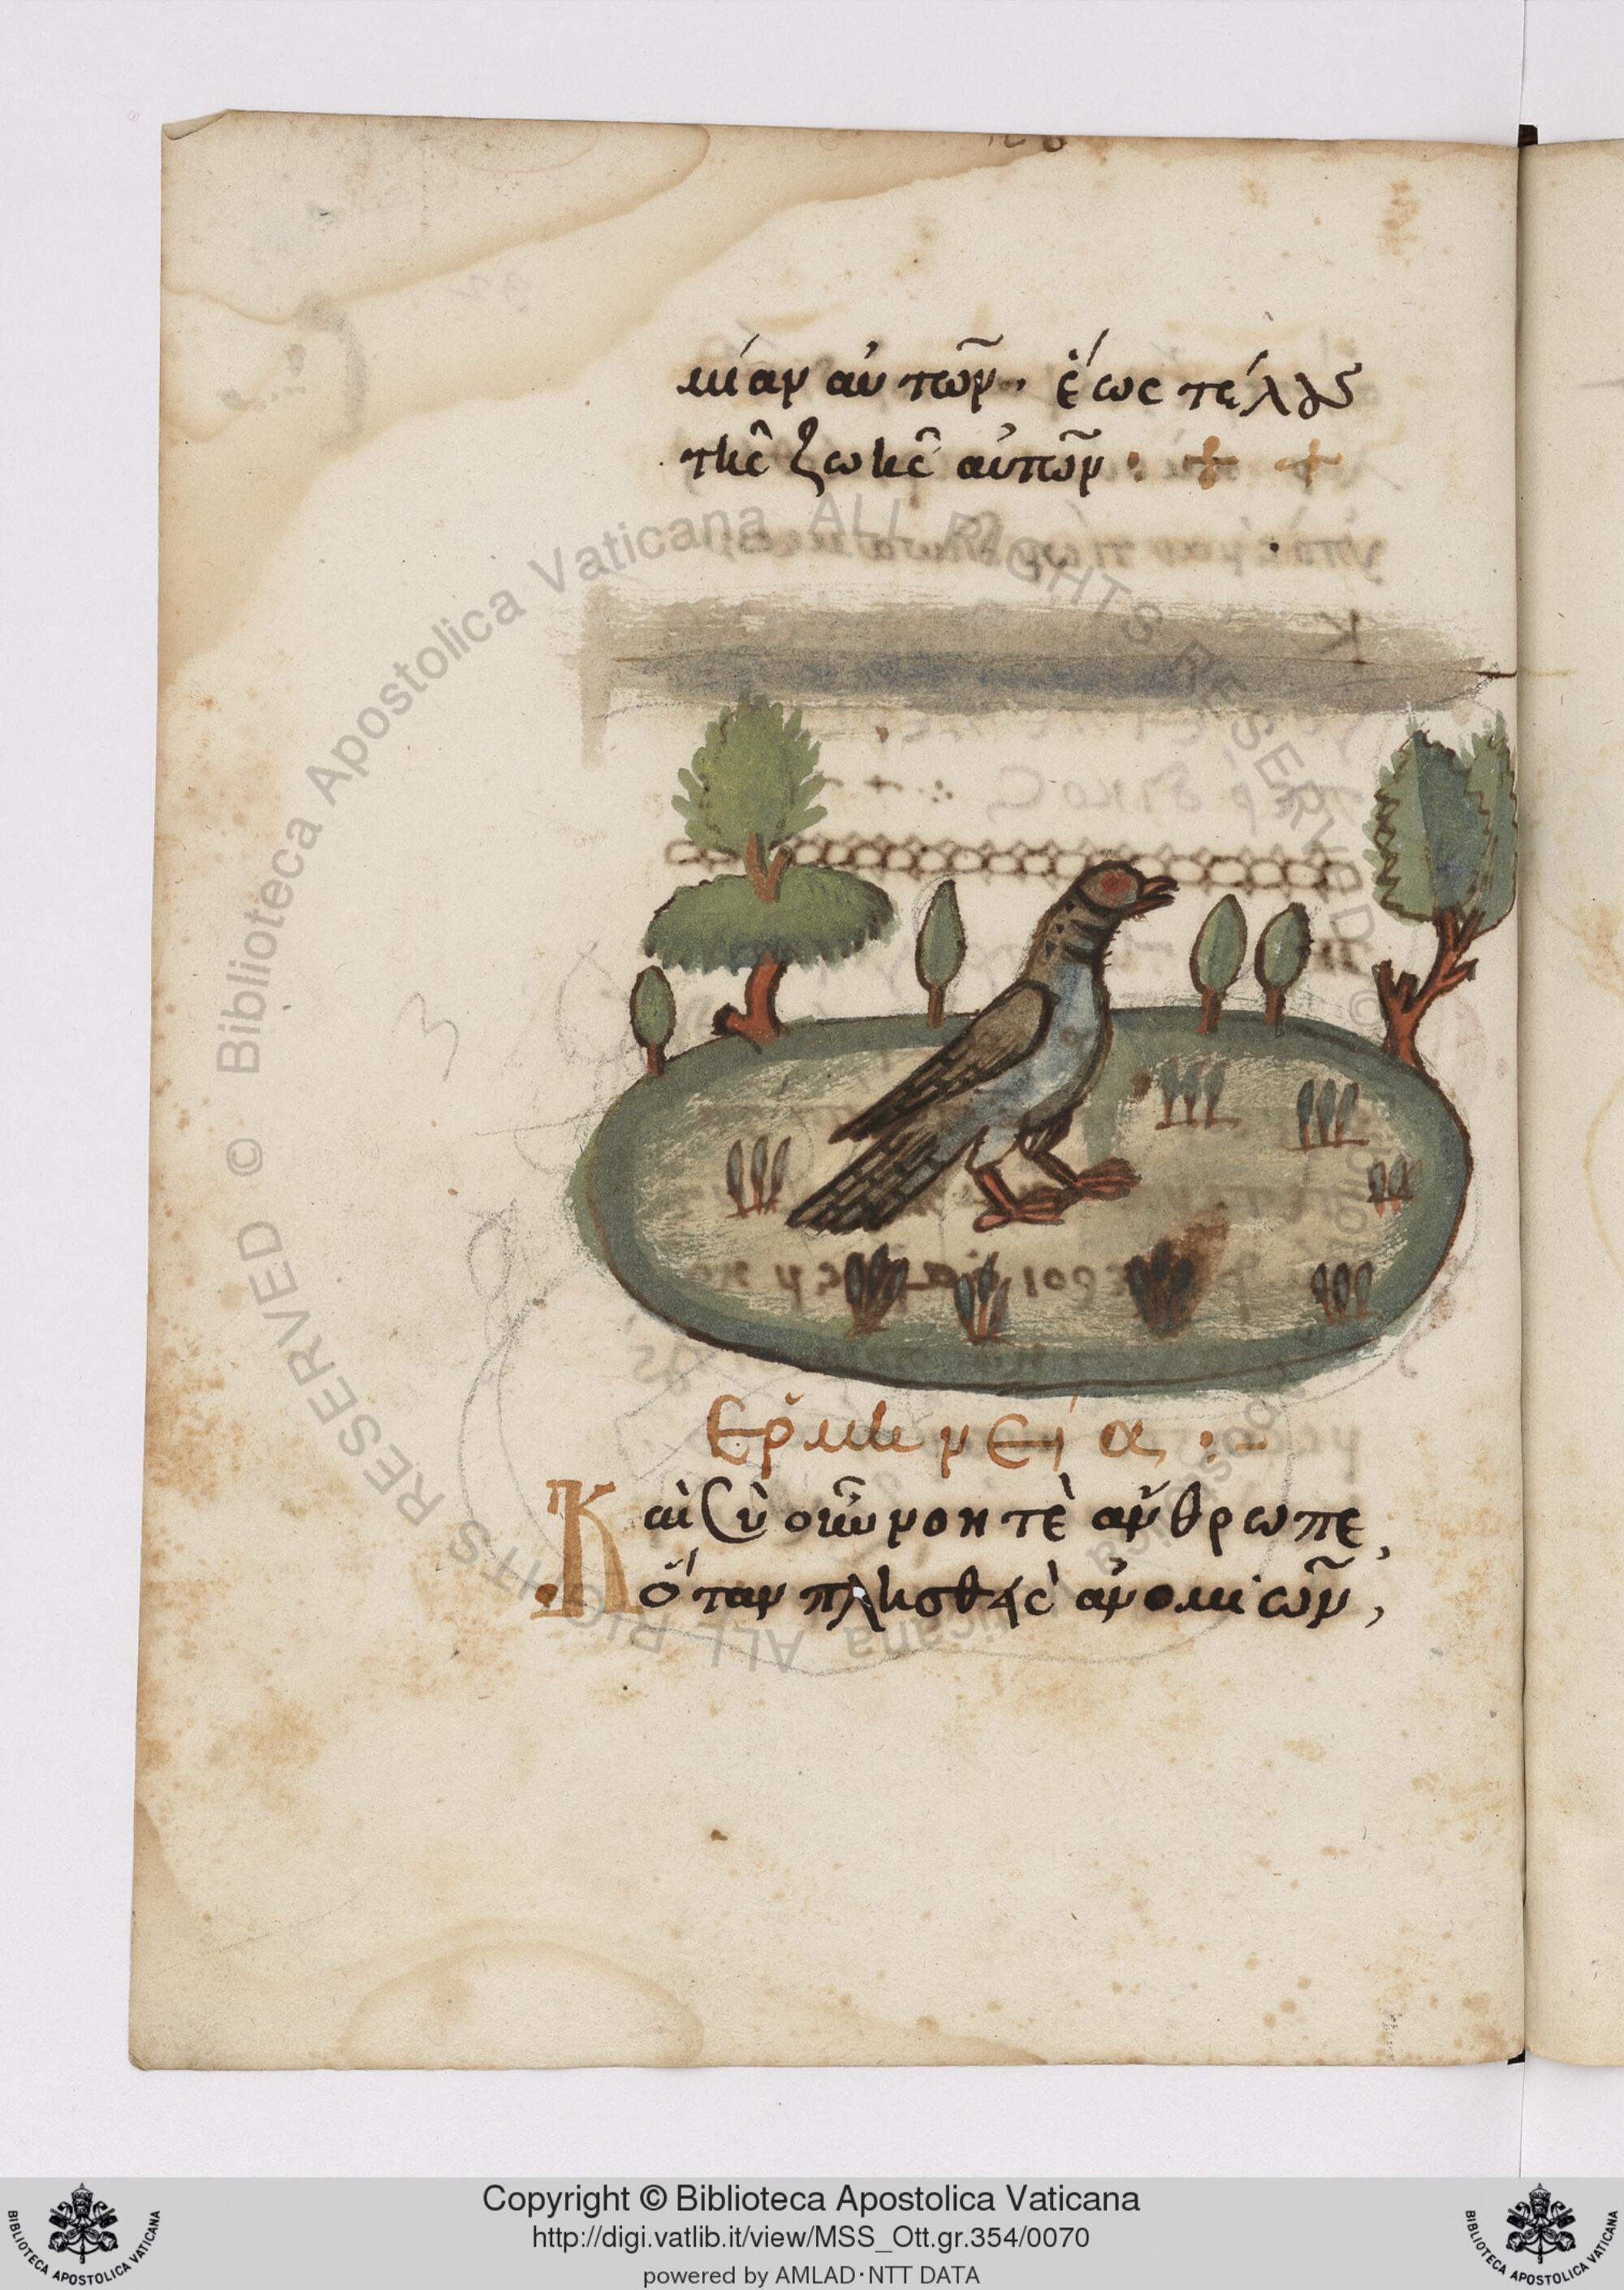 μίαν αὐτῶν· ἕως τέλλους
τῆς ζωῆς αὐτῶν : + +
Ερμηνεία :-
Καὶ σὺ οὖν νοητὲ ἄνθρωπε,
ὅταν πλησθῆς ἀνομιῶν,
Biblioteca Apostolica Vaticana ALL RIGHTS RESERVED ©
Copyright © Biblioteca Apostolica Vaticana
http://digi.vatlib.it/view/MSS_Ott.gr.354/0070
powered by AMLAD·NTT DATA
BIBLIOTECA APOSTOLICA VATICANA
BIBLIOTECA APOSTOLICA VATICANA